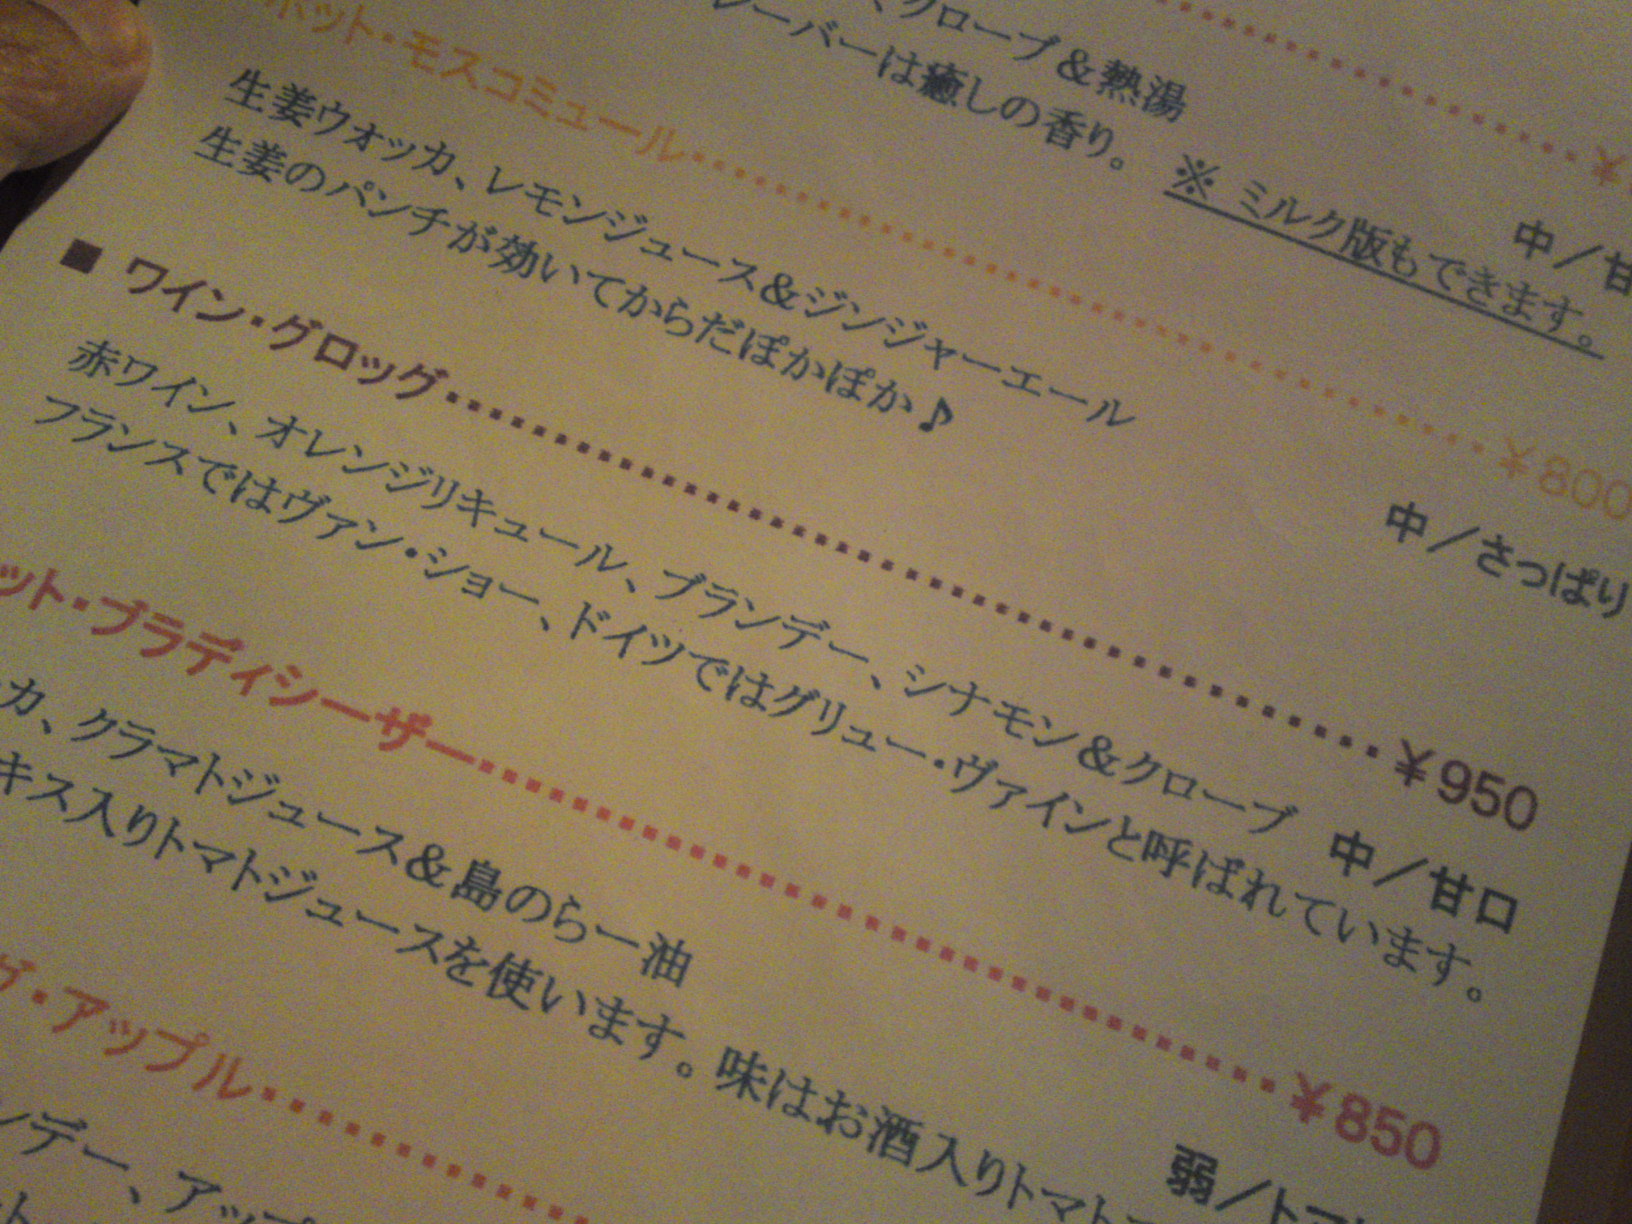 クローブ&熱湯
レーバーは癒しの香り。 ※ ミルク版もできます。
¥
中／甘
ホット・モスコミュール ¥800
生姜ウォッカ、レモンジュース&ジンジャーエール 中／さっぱり
生姜のパンチが効いてからだぽかぽか♪
■ ワイン・グロッグ ¥950
赤ワイン、オレンジリキュール、ブランデー、シナモン&クローブ 中／甘口
フランスではヴァン・ショー、ドイツではグリュー・ヴァインと呼ばれています。
ット・ブラディシーザー ¥850
カ、クラマトジュース&島のらー油 弱／トマ
キス入りトマトジュースを使います。味はお酒入りトマト
グ・アップル
ンデー、アップ